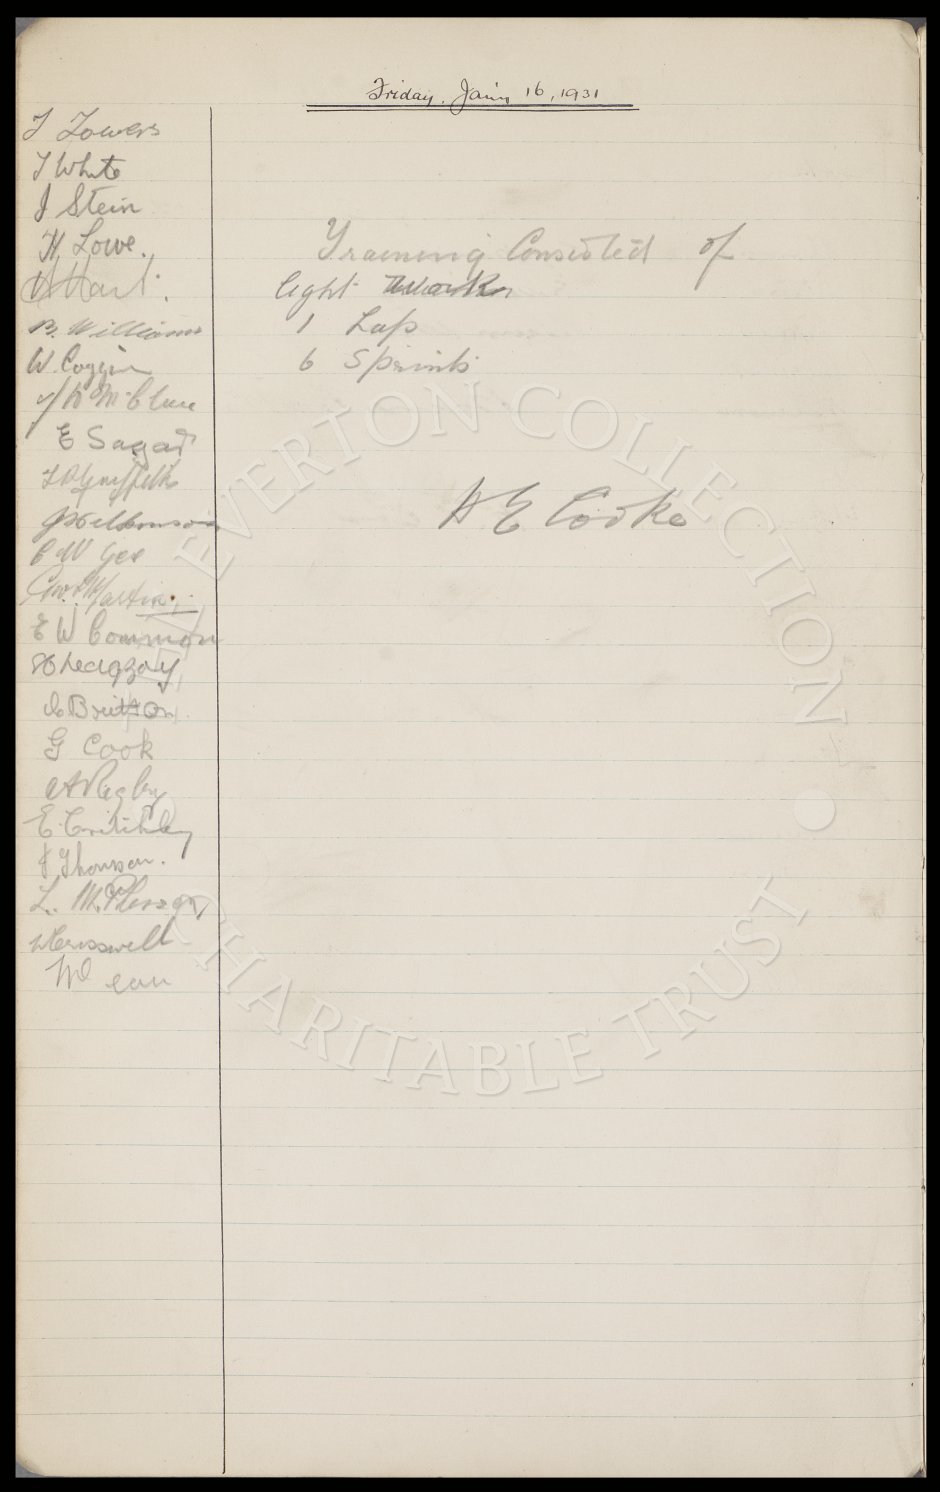 Friday, Jan'y 16, 1931
T Towers
T White
J Stein
H Lowe.
H Hart.
B. Williams
W. Coggin
J H McClure
E Sagar
T P Griffiths
C W Gee
Geo. Martin.
E W Common
C Britton
G Cook
A Rigby
E. Critchley
J Thomson.
L. McPherson
W Cresswell
W Dean
Training Consisted of
light Work
1 Lap
6 Sprints
H E Cooke
THE EVERTON COLLECTION • CHARITABLE TRUST